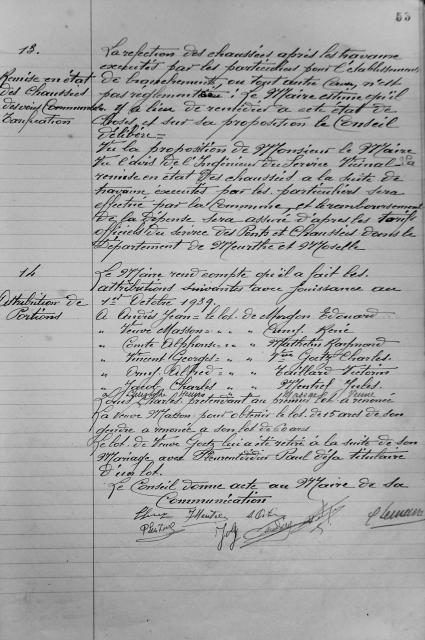 55
13.
Remise en état
des Chaussées
des voies Communales
Tarification
La réfection des chaussées après les travaux
exécutés par les particuliers pour l'établissement
de branchements, ou tout autre n'est
pas réglementée; Le Maire estime qu'il
y a lieu de remédier à cet état de
choses, et sur sa proposition le Conseil
délibère =
Vu la proposition de Monsieur le Maire
Vu l'avis de l'Ingénieur du Service Vicinal la
remise en état des chaussées à la suite de
travaux exécutés par les particuliers sera
effectué par la Commune, et le remboursement
de la dépense sera assuré d'après les tarifs
officiels du service des Ponts et Chaussées dans le
Département de Meurthe et Moselle
14
Attribution de
Portions
Le Maire rend compte qu'il a fait les
attributions suivantes avec jouissance au
1er Octobre 1939.
A Jean = le lot de Edouard
" Veuve Masson = " " René
" Comte Alphonse = " " Mathelin Raymond
" Vincent Georges = " " Vve Goetz Charles
" Alfred = " " Taillard Victorin
" Jacob Charles " " Mentrel Jules
Louis Charles arrivant au premier lot a renoncé
La veuve Masson pour obtenir le lot de 15 ares de son
a renoncé à son lot de 60 ares
Le lot de Veuve Goetz lui a été retiré à la suite de son
Mariage avec Paul déjà titulaire
d'un lot.
Le Conseil donne acte au Maire de sa
Communication